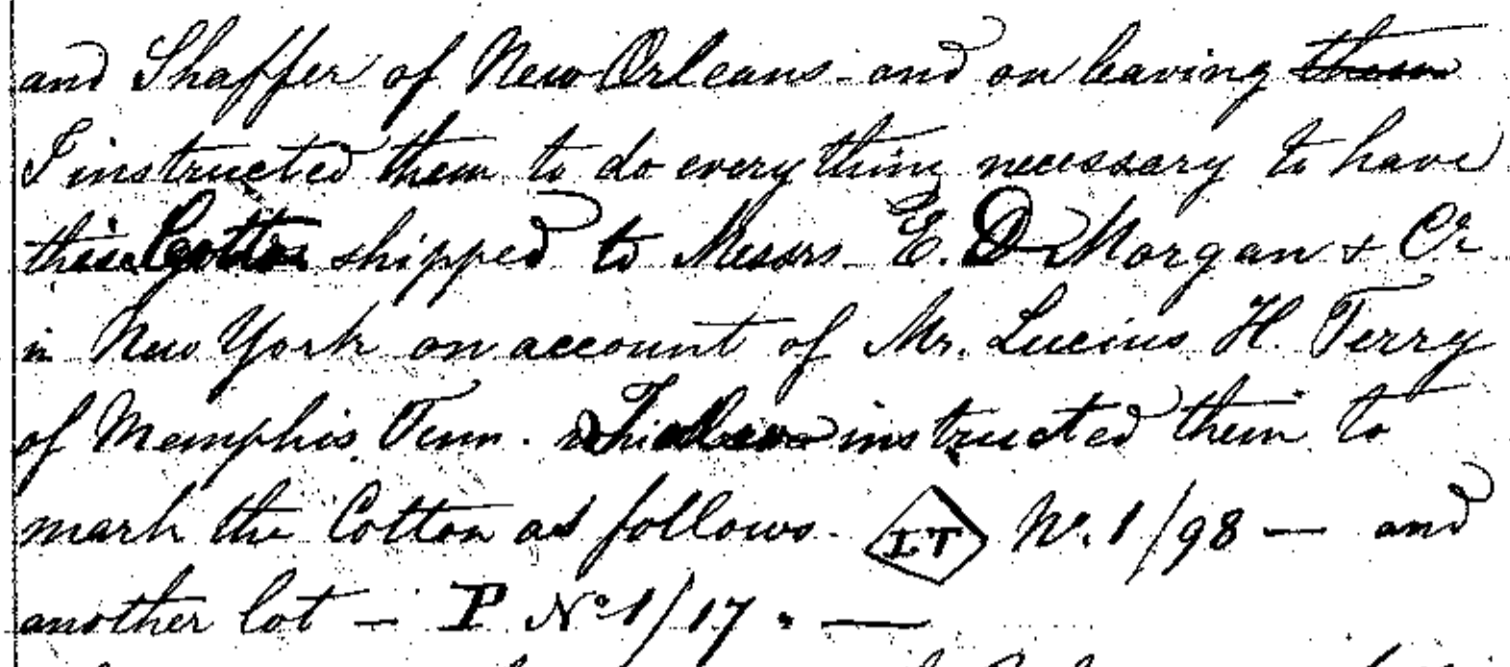 and Shaffer of New Orleans - and on leaving them
I instructed them to do every thing necessary to have
this Cotton shipped to Messrs. E. D Morgan & Co
in New York on account of Mr. Lucius H. Terry
of Memphis Tenn. instructed them to
mark the Cotton as follows - LT No. 1/98 — and
another lot — P No 1/17 " —